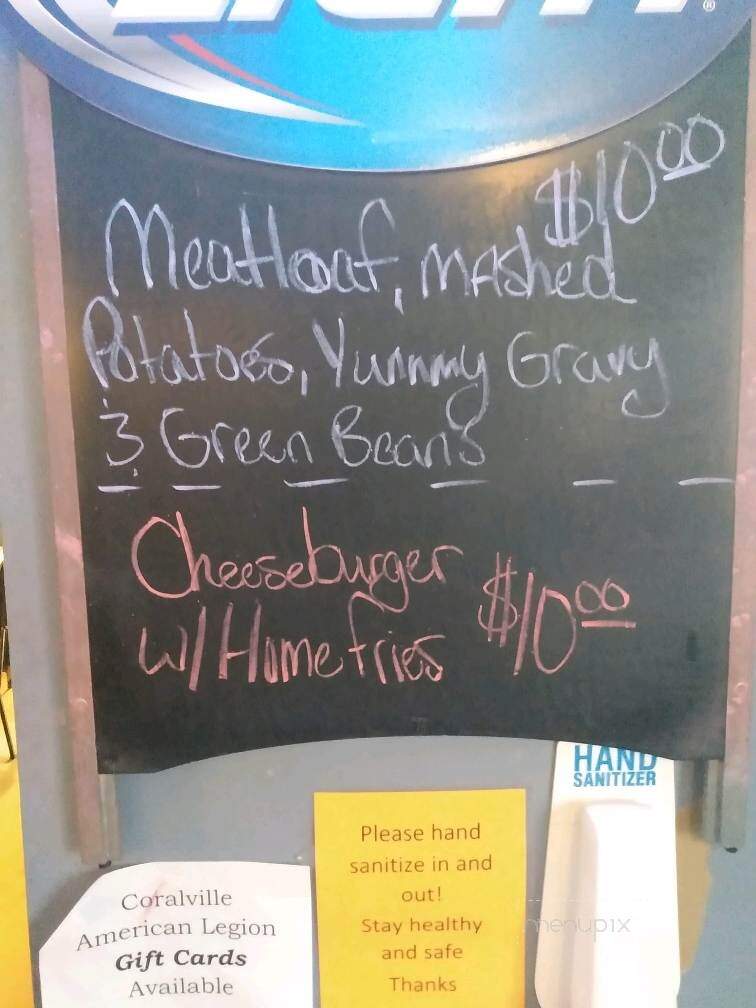 LIGHT
®
$10.00
Meatloaf, mashed
Potatoes, Yunnmy Gravy
& Green Beans
Cheeseburger
w/ Homefries $10.00
HAND
SANITIZER
Please hand
sanitize in and
out!
Stay healthy
and safe
Thanks
Coralville
American Legion
Gift Cards
Available
menupix